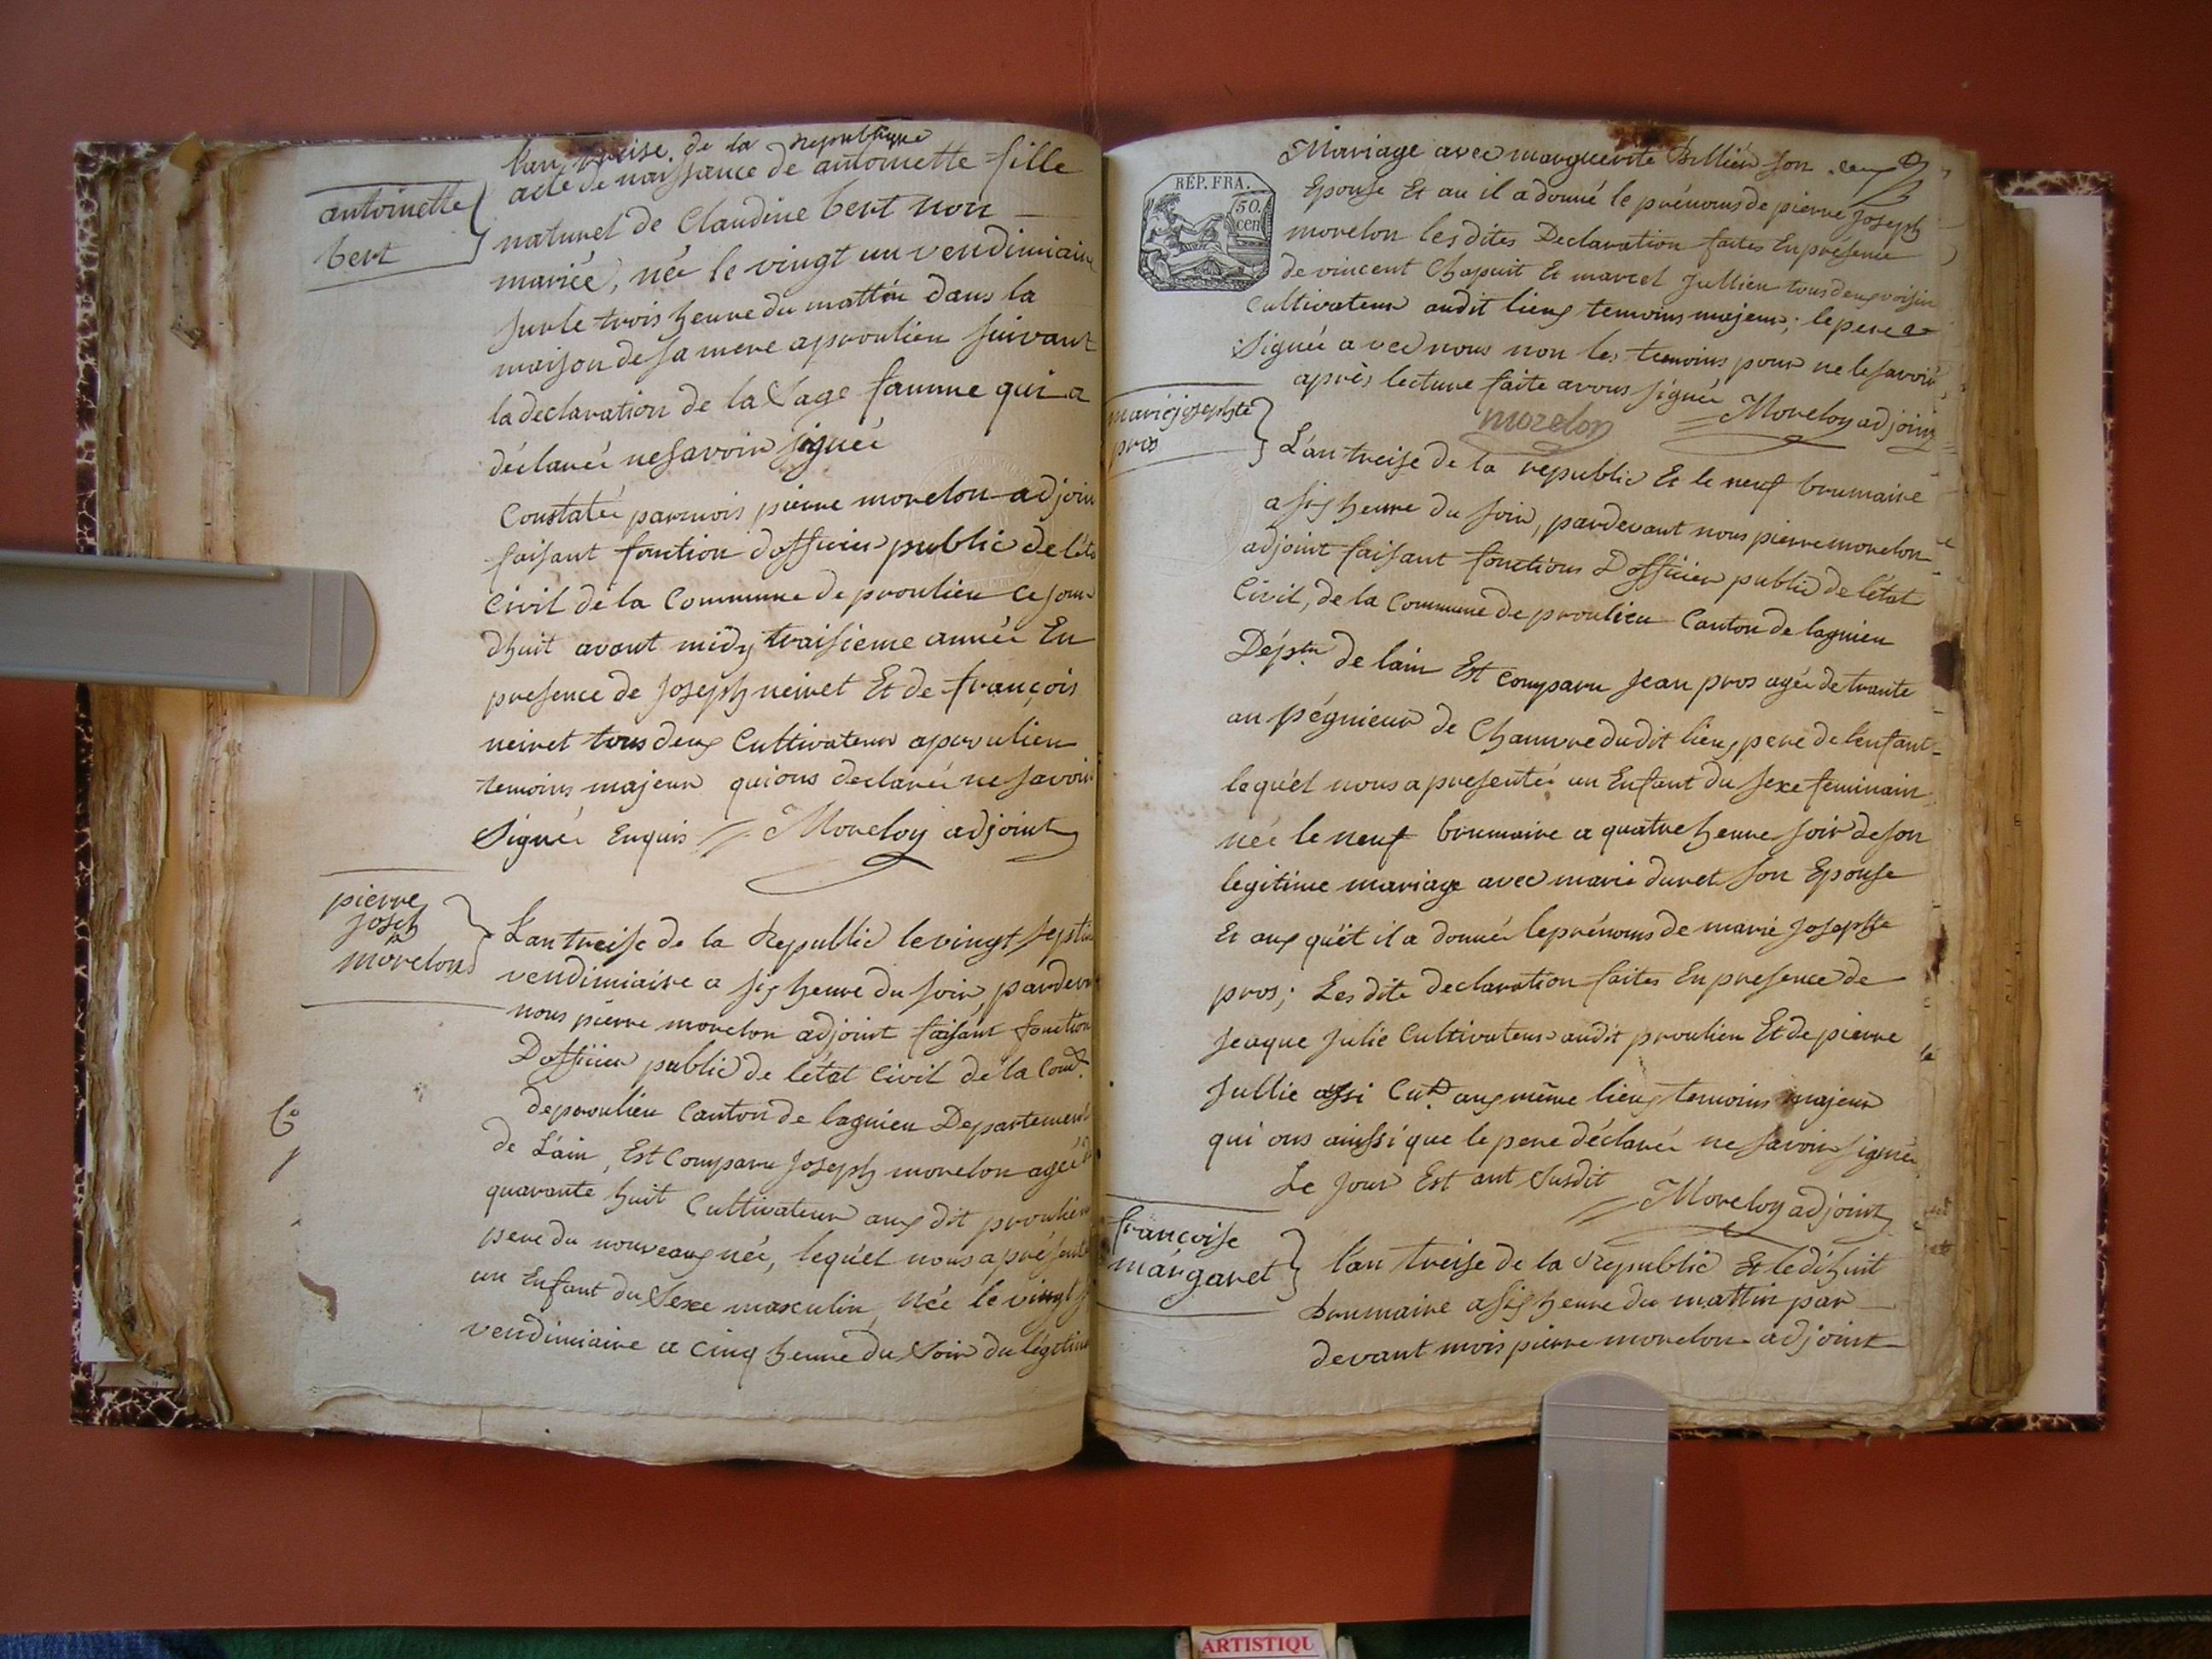 l'an treise de la republique
antoinette
bert
acte de naissance de antoinette fille
naturel de Claudine bert non
mariée, née le vingt un vendimiaire
sur le trois heure du mattin dans la
maison de sa mere aproulieu suivant
la declaration de la Sage famme qui a
déclareé ne savoir signeé
Constateé parmois pierre morelon adjoin
faisant fonction dofficier public de l'éta
Civil de la Commune de proulieu ce jour
dhuit avant midy traisieme année En
presence de Joseph neiret Et de françois
neiret tous deux Cultivateur aproulieu
temoins majeur quions declareé ne savoir
Signeé Enquis Moreloy adjoint
pierre
joseh
morelon
L'an treise de la Republic le vingt septi
vendimiaire a six heure du soir, pardev
nous pierre morelon adjoint faisant fonction
Dofficier public de létat Civil de la Com.
deproulieu Canton de lagnieu Departement
de L'ain, Est Comparu Joseph morelon ageé
quarante huit Cultivateur aux dit proulieu
pere du nouveaux née, lequ'el nous a présenté
un Enfant du Sexe masculin, née le vingt s
vendimiaire a cinq heure du Soir du légitim
RÉP. FRA.
50.
cen
Mariage avec marguerite Billién son
Epouse Et au il a donné le prénoms de pierre Joseph
morelon les dites Declaration faites En présence
de vincent Chapuit Et marcel Jullien tous deux voisin
Cultivateur audit lieux temoins majeur; le pere a
Signeé avec nous non les temoins pour ne le savoir
après lecture faite avous signeé Moreloy adjoint
morelon
marie josephte
pros
L'an treise de la republic Et le neuf brumaire
a six heure du soir, pardevant nous pierre morelon
adjoint faisant fonctions Dofficier public de létat
Civil, de la Commune de proulieu Canton de lagnieu
Dép.tn de lain Est Comparu Jean pros ageé de trante
an pégnieur de Chanvre dudit lieux pere de l'enfant
lequ'el nous a presenteé un Enfant du sexe feminain
née le neuf brumaire a quatre heure soir de son
legitime mariage avec marie duret son Epouse
Et aux qu'ét il a donneé le prénoms de marie Josephte
pros; Les dite Declaration faites En presence de
Jeaque Julie Cultivateur audit proulieu Et de pierre
Jullie assi Cut. aux même lieux temoins majeur
qui ons ainssi que le pere déclareé ne savoir signeé
Le Jour Est ant Susdit Moreloy adjoint
françoise
margaret
l'an treise de la Republic Et le dihuit
brumaire a six heure du mattin par
devant mois pierre morelon adjoint
ARTISTIQU